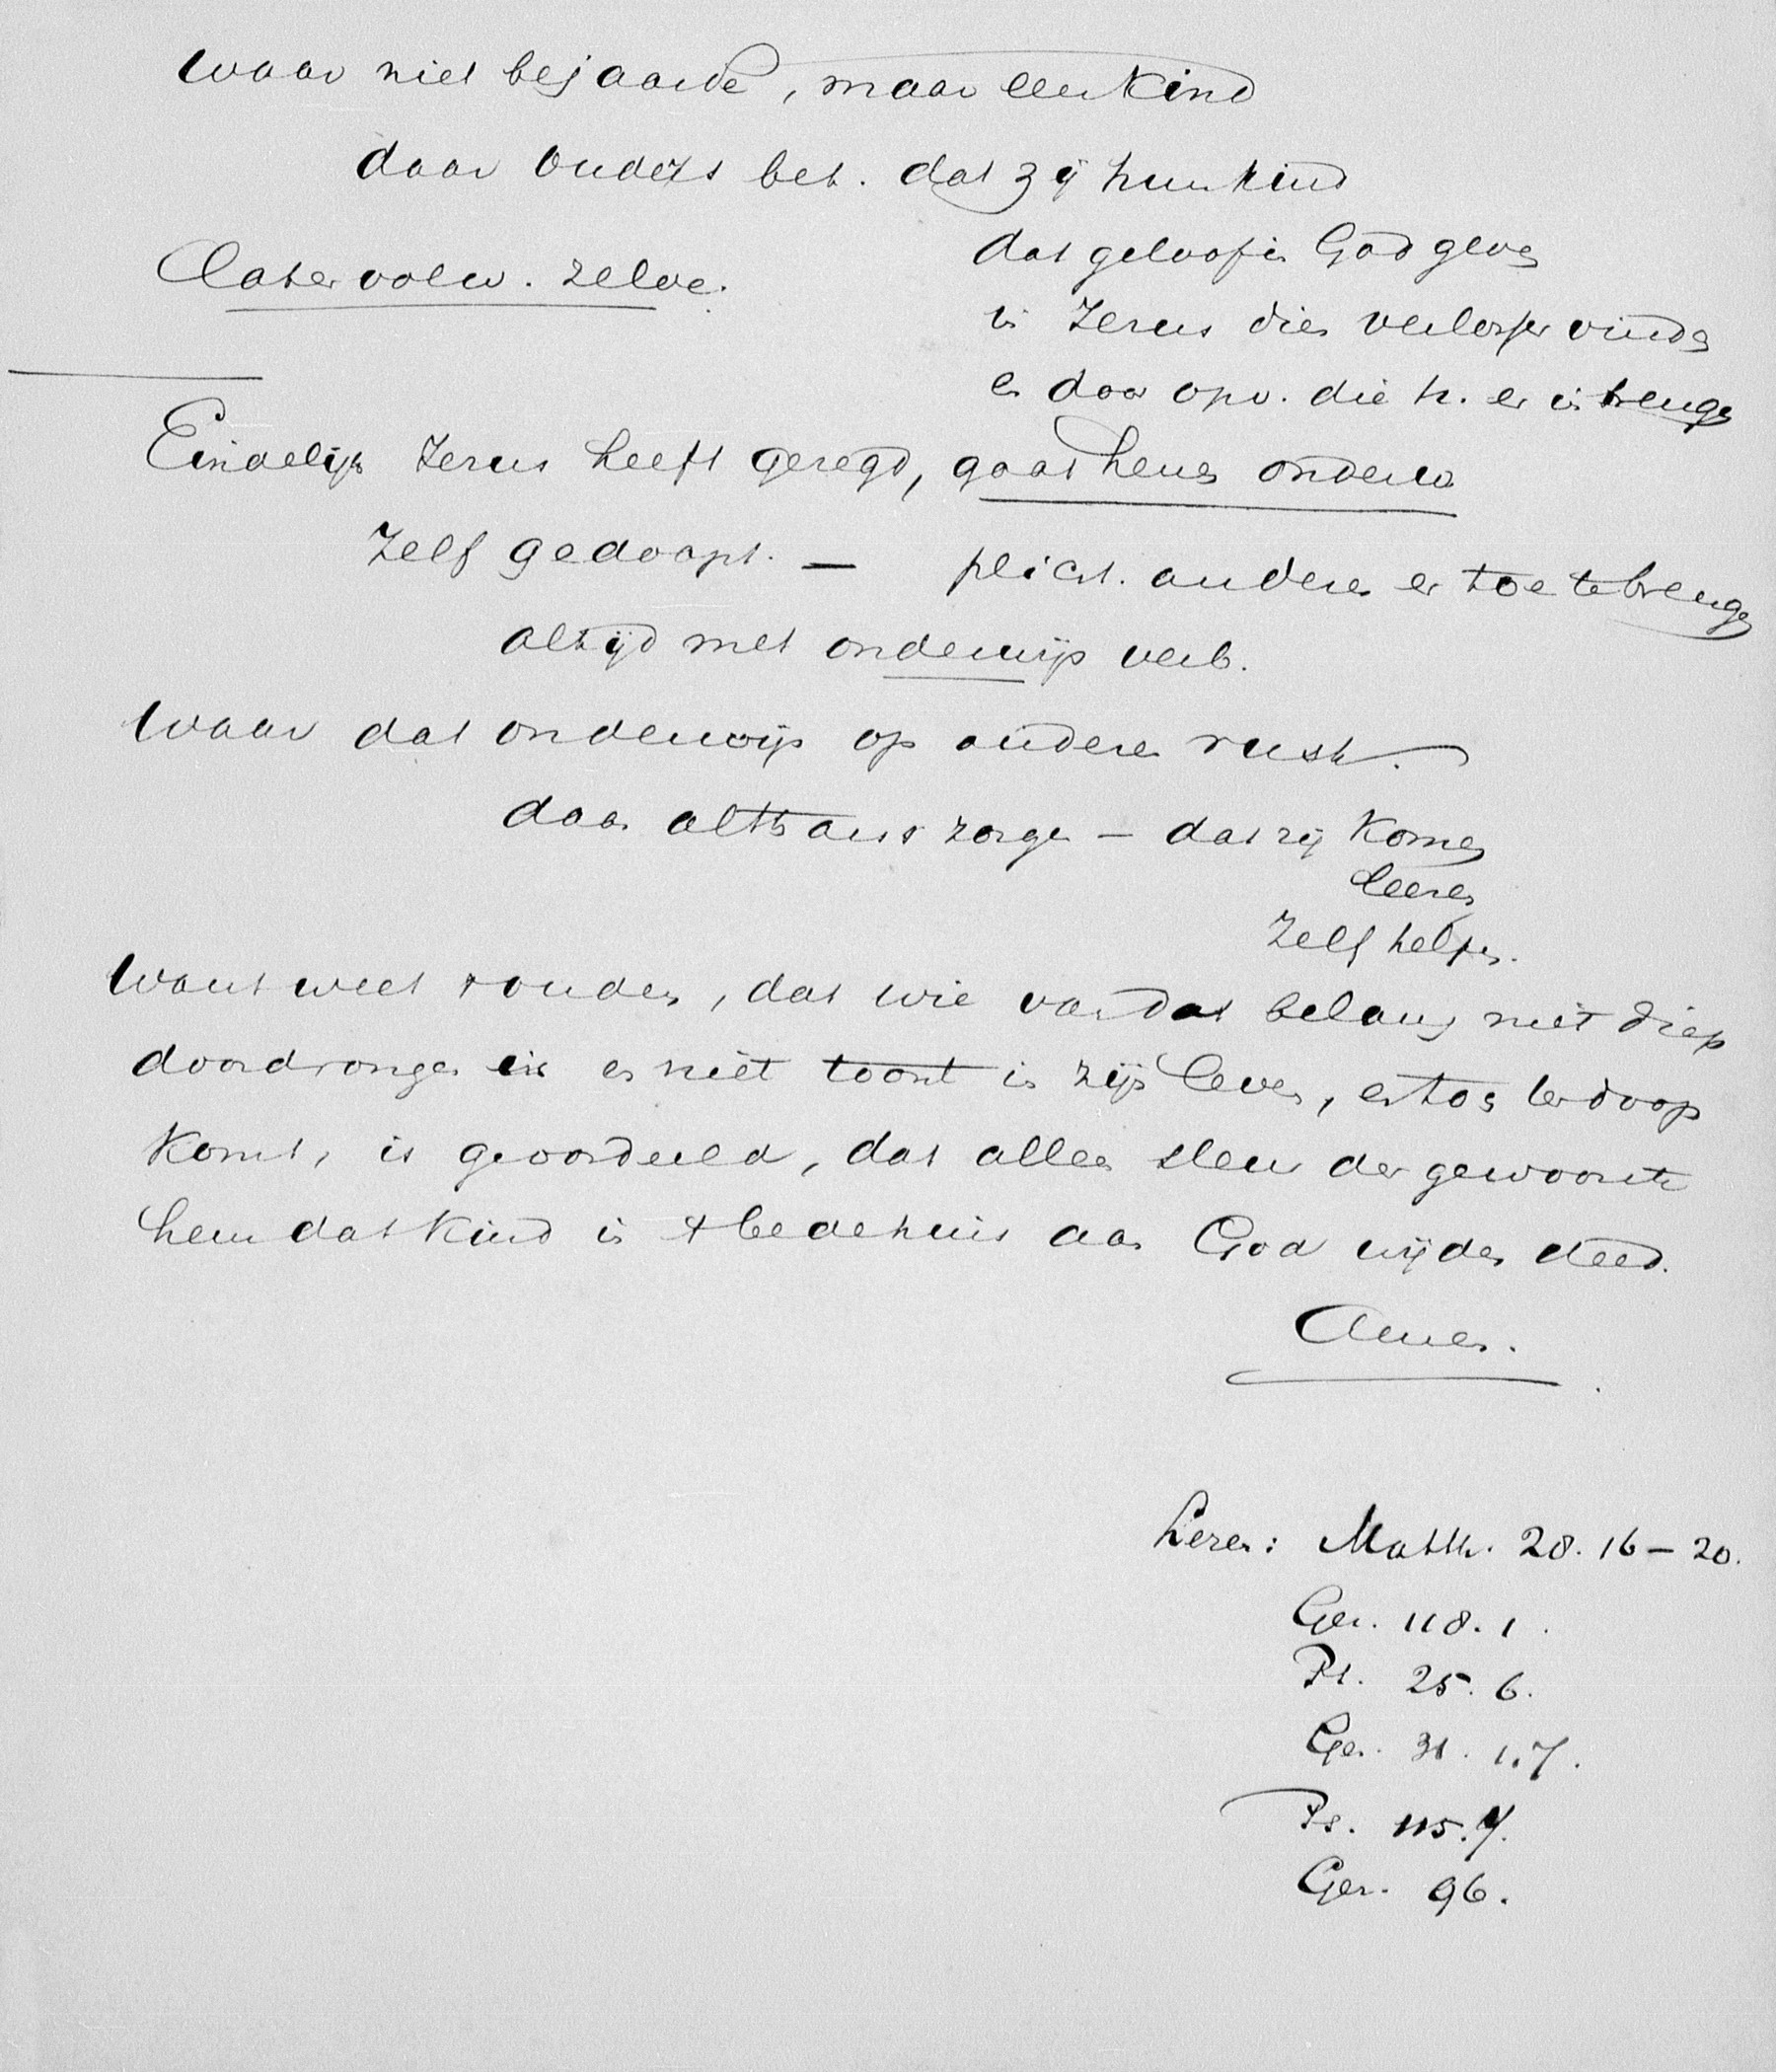 Waar niet bejaarde, maar een kind
daar ouders bel. dat zij hun kind
dat geloof in God geven
Later volw. zelve.
in Jezus dien verlosser vinden
en door opv. die h. er in brengen
Eindelijk Jezus heeft gezegd, gaat henen onderw
Zelf gedoopt. — plicht. anderen er toe te brengen
altijd met onderwijs verb.
Waar dat onderwijs op anderen rust.
daar althans zorgen – dat zij komen
leeren
Zelf helpen.
Want weet ouders, dat wie van dat belang niet diep
doordrongen is en niet toont in zijn leven, en toch ter doop
komt, is geoordeeld, dat alleen sleur der gewoonte
hem dat kind in 't bedehuis aan God wijden deed.
Amen.
Lezen: Matth. 28. 16 – 20.
Gez. 118. 1.
Ps. 25. 6.
Gez. 31. 1.7.
Ps. 115. 7.
Gez. 96.